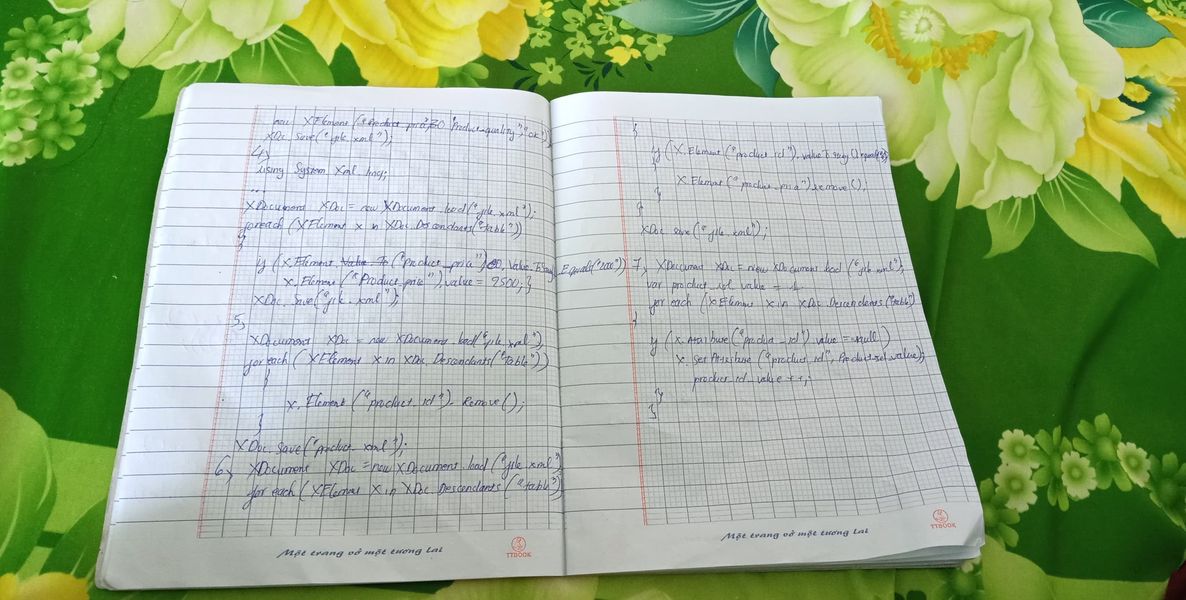 new XElement("Product_price", 50 "Product-quality", "ok"));
XDoc. Save("file. xml");
4,
Using System Xml. linq;
...
XDocument XDoc = new XDocument. load("file. xml");
foreach (XElement x in XDoc. Descendants("table"))
{
if (x. Element ("Product_price") Value. ToString Equals("200"))
x. Element("Product_price").value = 9500; }
XDoc. Save("file. xml");
5,
XDocument XDoc = new XDocument. load("file xml")
for each (XElement X in XDoc. Descendants("table"))
{
x. Element("product_id"). Remove();
}
XDoc. Save("product. xml");
6, XDocument XDoc = new XDocument. load("file xml")
for each (XElement X in XDoc. Descendants ("table"))
Một trang vở một tương lai
TTBOOK
{
if (X. Element("product_id"). value
{
X. Element("product_price") remove();
}
}
XDoc save("file. xml");
7, XDocument XDoc = new XDocument. load("file. xml");
var product_id_value = 1
for each (XElement X in XDoc Descendants("table")
{
if (x. Attribute("product_id") value = null)
x. set Attribute ("product_id", Product_id_value);
product_id_value ++;
}
}
Một trang vở một tương lai
TTBOOK